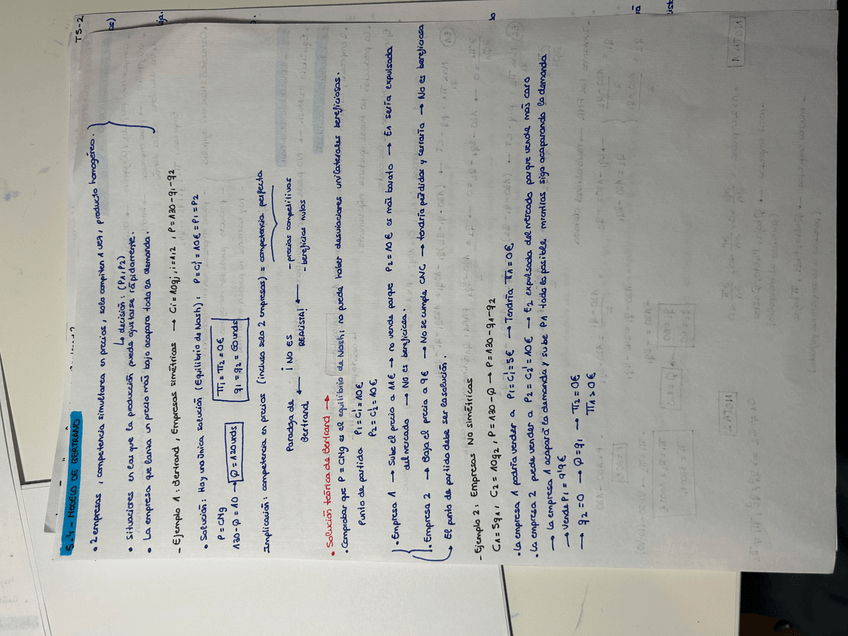 5.4 - MODELO DE BERTRAND
• 2 empresas, competencia simultánea en precios, solo compiten 1 vez, producto homogéneo.
↳ decisión: (P1, P2)
• Situaciones en las que la producción puede ajustarse rápidamente.
• La empresa que lanza un precio más bajo acapara toda la demanda.
- Ejemplo 1: Bertrand, Empresas simétricas → Ci = 10qi, i=1,2, P = 130-q1-q2
• Solución: Hay una única solución (Equilibrio de Nash): P = C'i = 10€ = P1 = P2
P = CMg
130-Q = 10 → Q = 120 unds
π1 = π2 = 0€
q1 = q2 = 60 unds
Implicación: competencia en precios (incluso solo 2 empresas) = competencia perfecta
Paradoja de Bertrand ← ¡NO ES REALISTA! ←
- precios competitivos
- beneficios nulos
• Solución teórica de Bertrand →
• Comprobar que P = CMg es el equilibrio de Nash; no puede haber desviaciones unilaterales beneficiosas.
Punto de partida P1 = C'1 = 10€
P2 = C'2 = 10€
• Empresa 1 → Sube el precio a 11€ → no vende porque P2 = 10€ es más barato → E1 sería expulsada
del mercado → No es beneficiosa.
• Empresa 2 → Baja el precio a 9€ → No se cumple CNC → tendría pérdidas y cerraría → No es beneficiosa
↳ El punto de partida debe ser la solución.
- Ejemplo 2: Empresas NO simétricas
C1 = 5q1, C2 = 10q2, P = 130-Q → P = 130-q1-q2
• La empresa 1 podría vender a P1 = C'1 = 5€ → Tendría π1 = 0€
• La empresa 2 puede vender a P2 = C'2 = 10€ → E2 expulsada del mercado porque vende más caro
→ La empresa 1 acapara la demanda y sube P1 todo lo posible mientras siga acaparando la demanda
→ Vende P1 = 9'9€
→ q2 = 0 → Q = q1 → π2 = 0€
π1 > 0€
T5-2